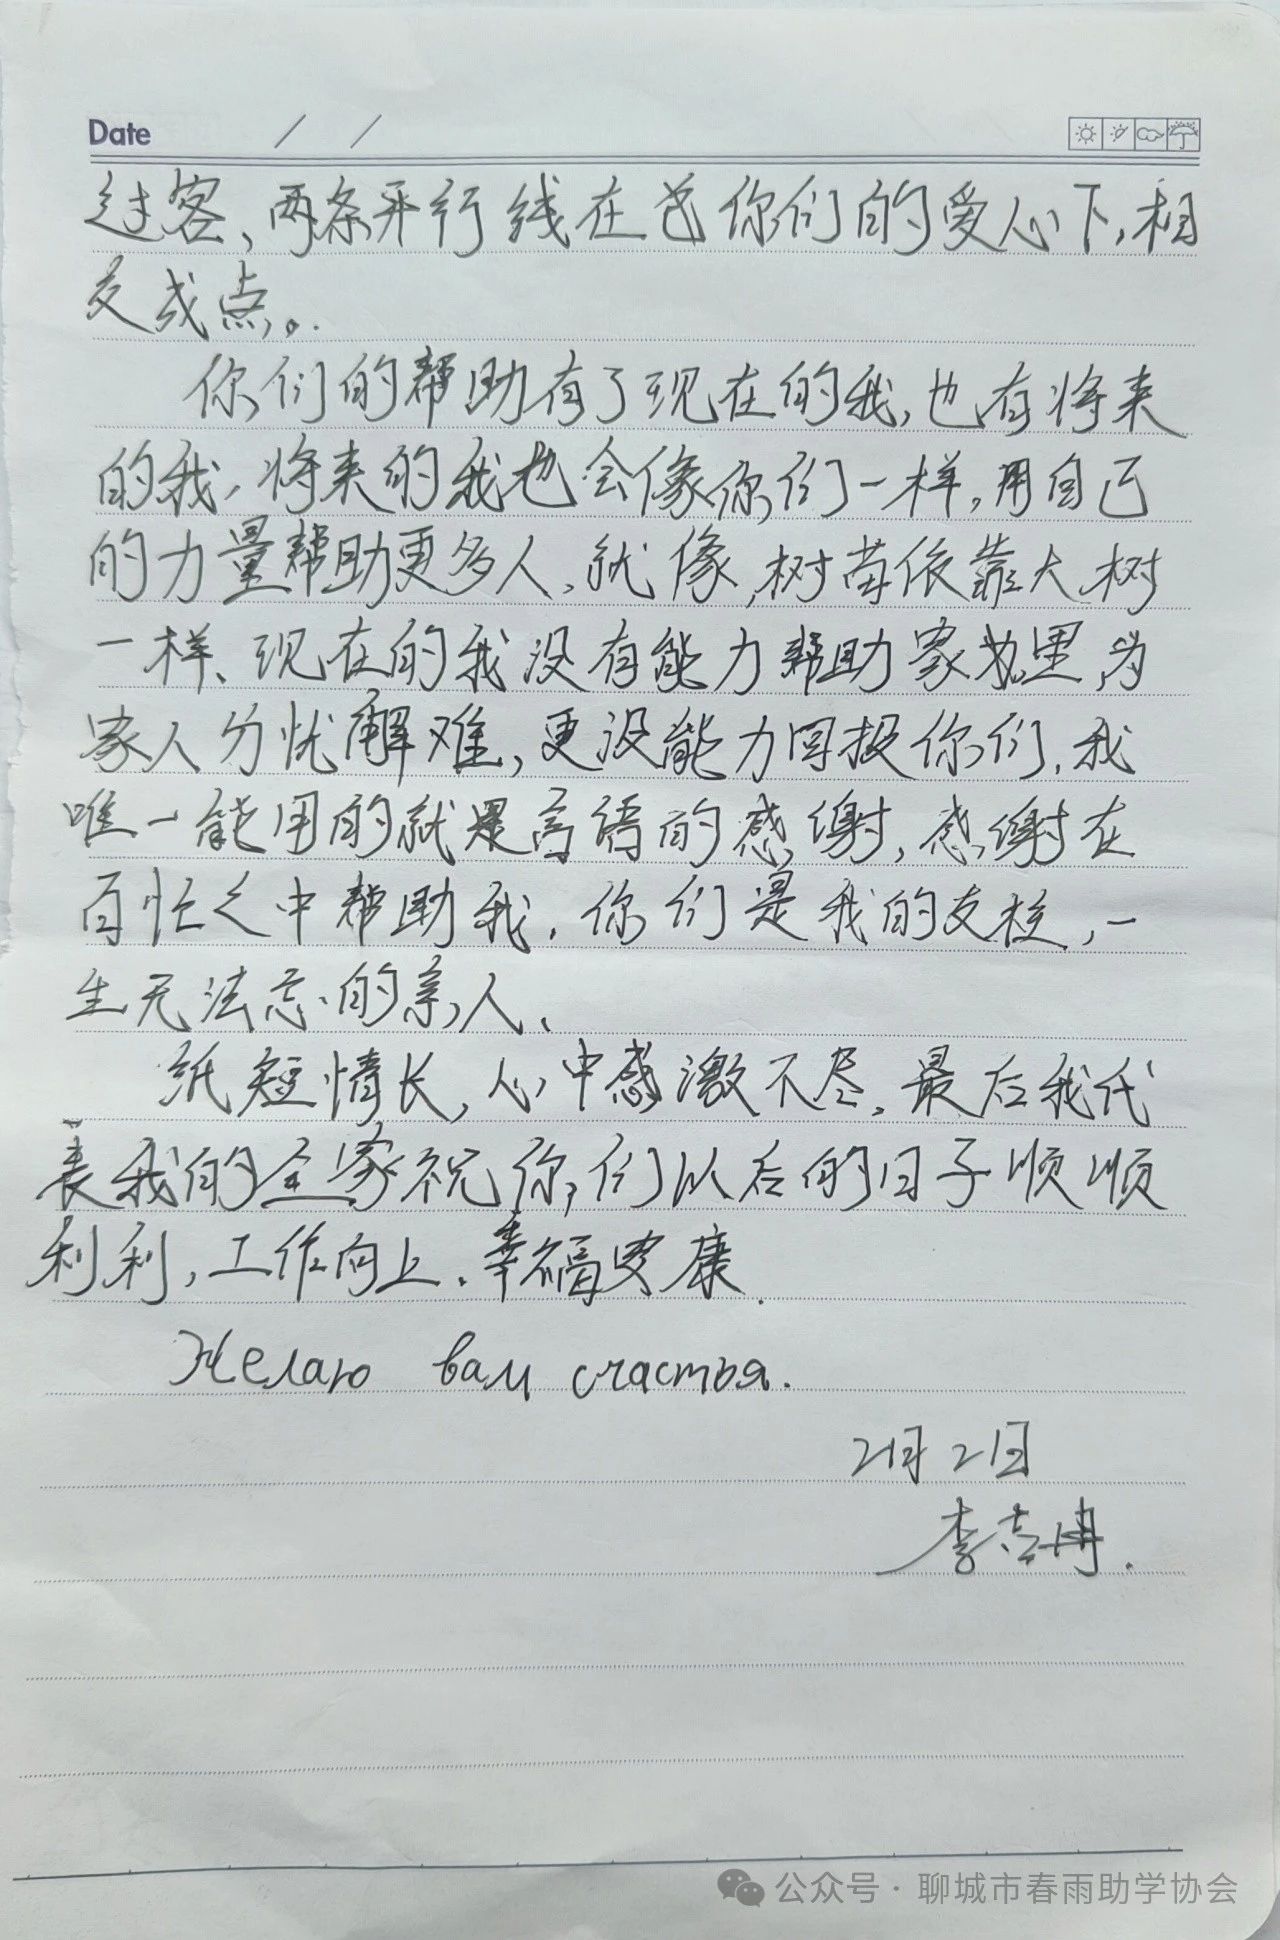 Date / /
过客、两条平行线在
你们的爱心下,相
交成点。
你们的帮助有了现在的我,也有将来
的我,将来的我也会像你们一样,用自己
的力量帮助更多人、就像,树苗依靠大树
一样、现在的我没有能力帮助家里,为
家人分忧解难,更没能力回报你们,我
唯一能用的就是言语的感谢,感谢在
百忙之中帮助我,你们是我的支柱,一
生无法忘的亲人、
纸短情长,心中感激不尽,最后我代
表我的全家祝你们以后的日子顺顺
利利,工作向上、幸福安康.
Желаю вам счастья.
2月2日
李
公众号·聊城市春雨助学协会